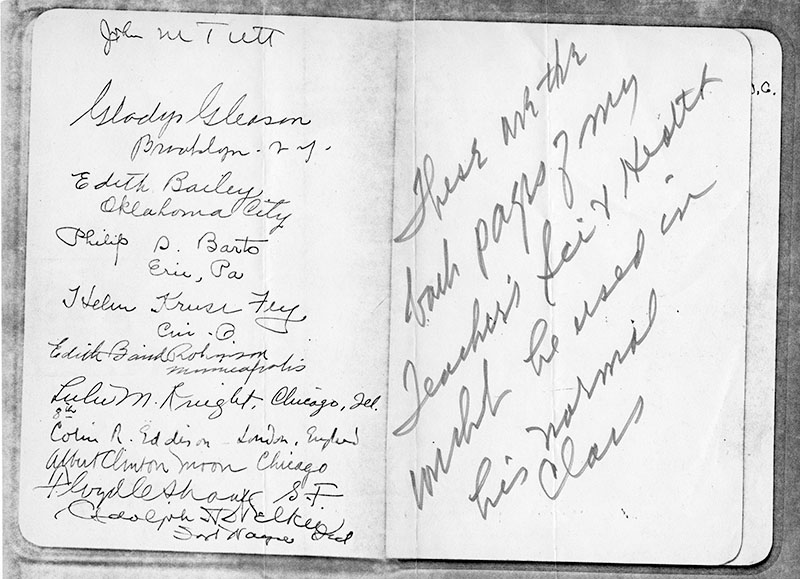 John M Tutt
Gladys Gleason
Brooklyn - N.Y.
Edith Bailey
Oklahoma City
Philip D. Barto
Erie, Pa
Helen Kruse Fey
Cin - O
Edith Baird Robinson
Minneapolis
Lulu M. Knight, Chicago, Ill.
8th
Colin R. Eddison - London, England
Albert Clinton Moon Chicago
Floyd C S F
Adolph
Fort Wayne Ind
These are the
back pages of my
Teacher's Sci & Health
which he used in
his normal
class